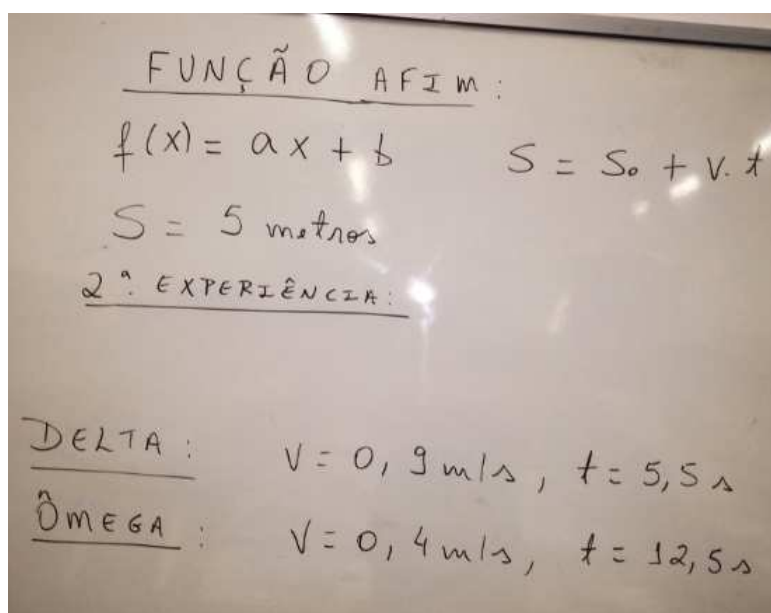 FUNÇÃO AFIM:
f(x) = ax + b
S = S₀ + V.t
S = 5 metros
2ª EXPERIÊNCIA:
DELTA: V = 0,9 m/s, t = 5,5 s
ÔMEGA: V = 0,4 m/s, t = 12,5 s